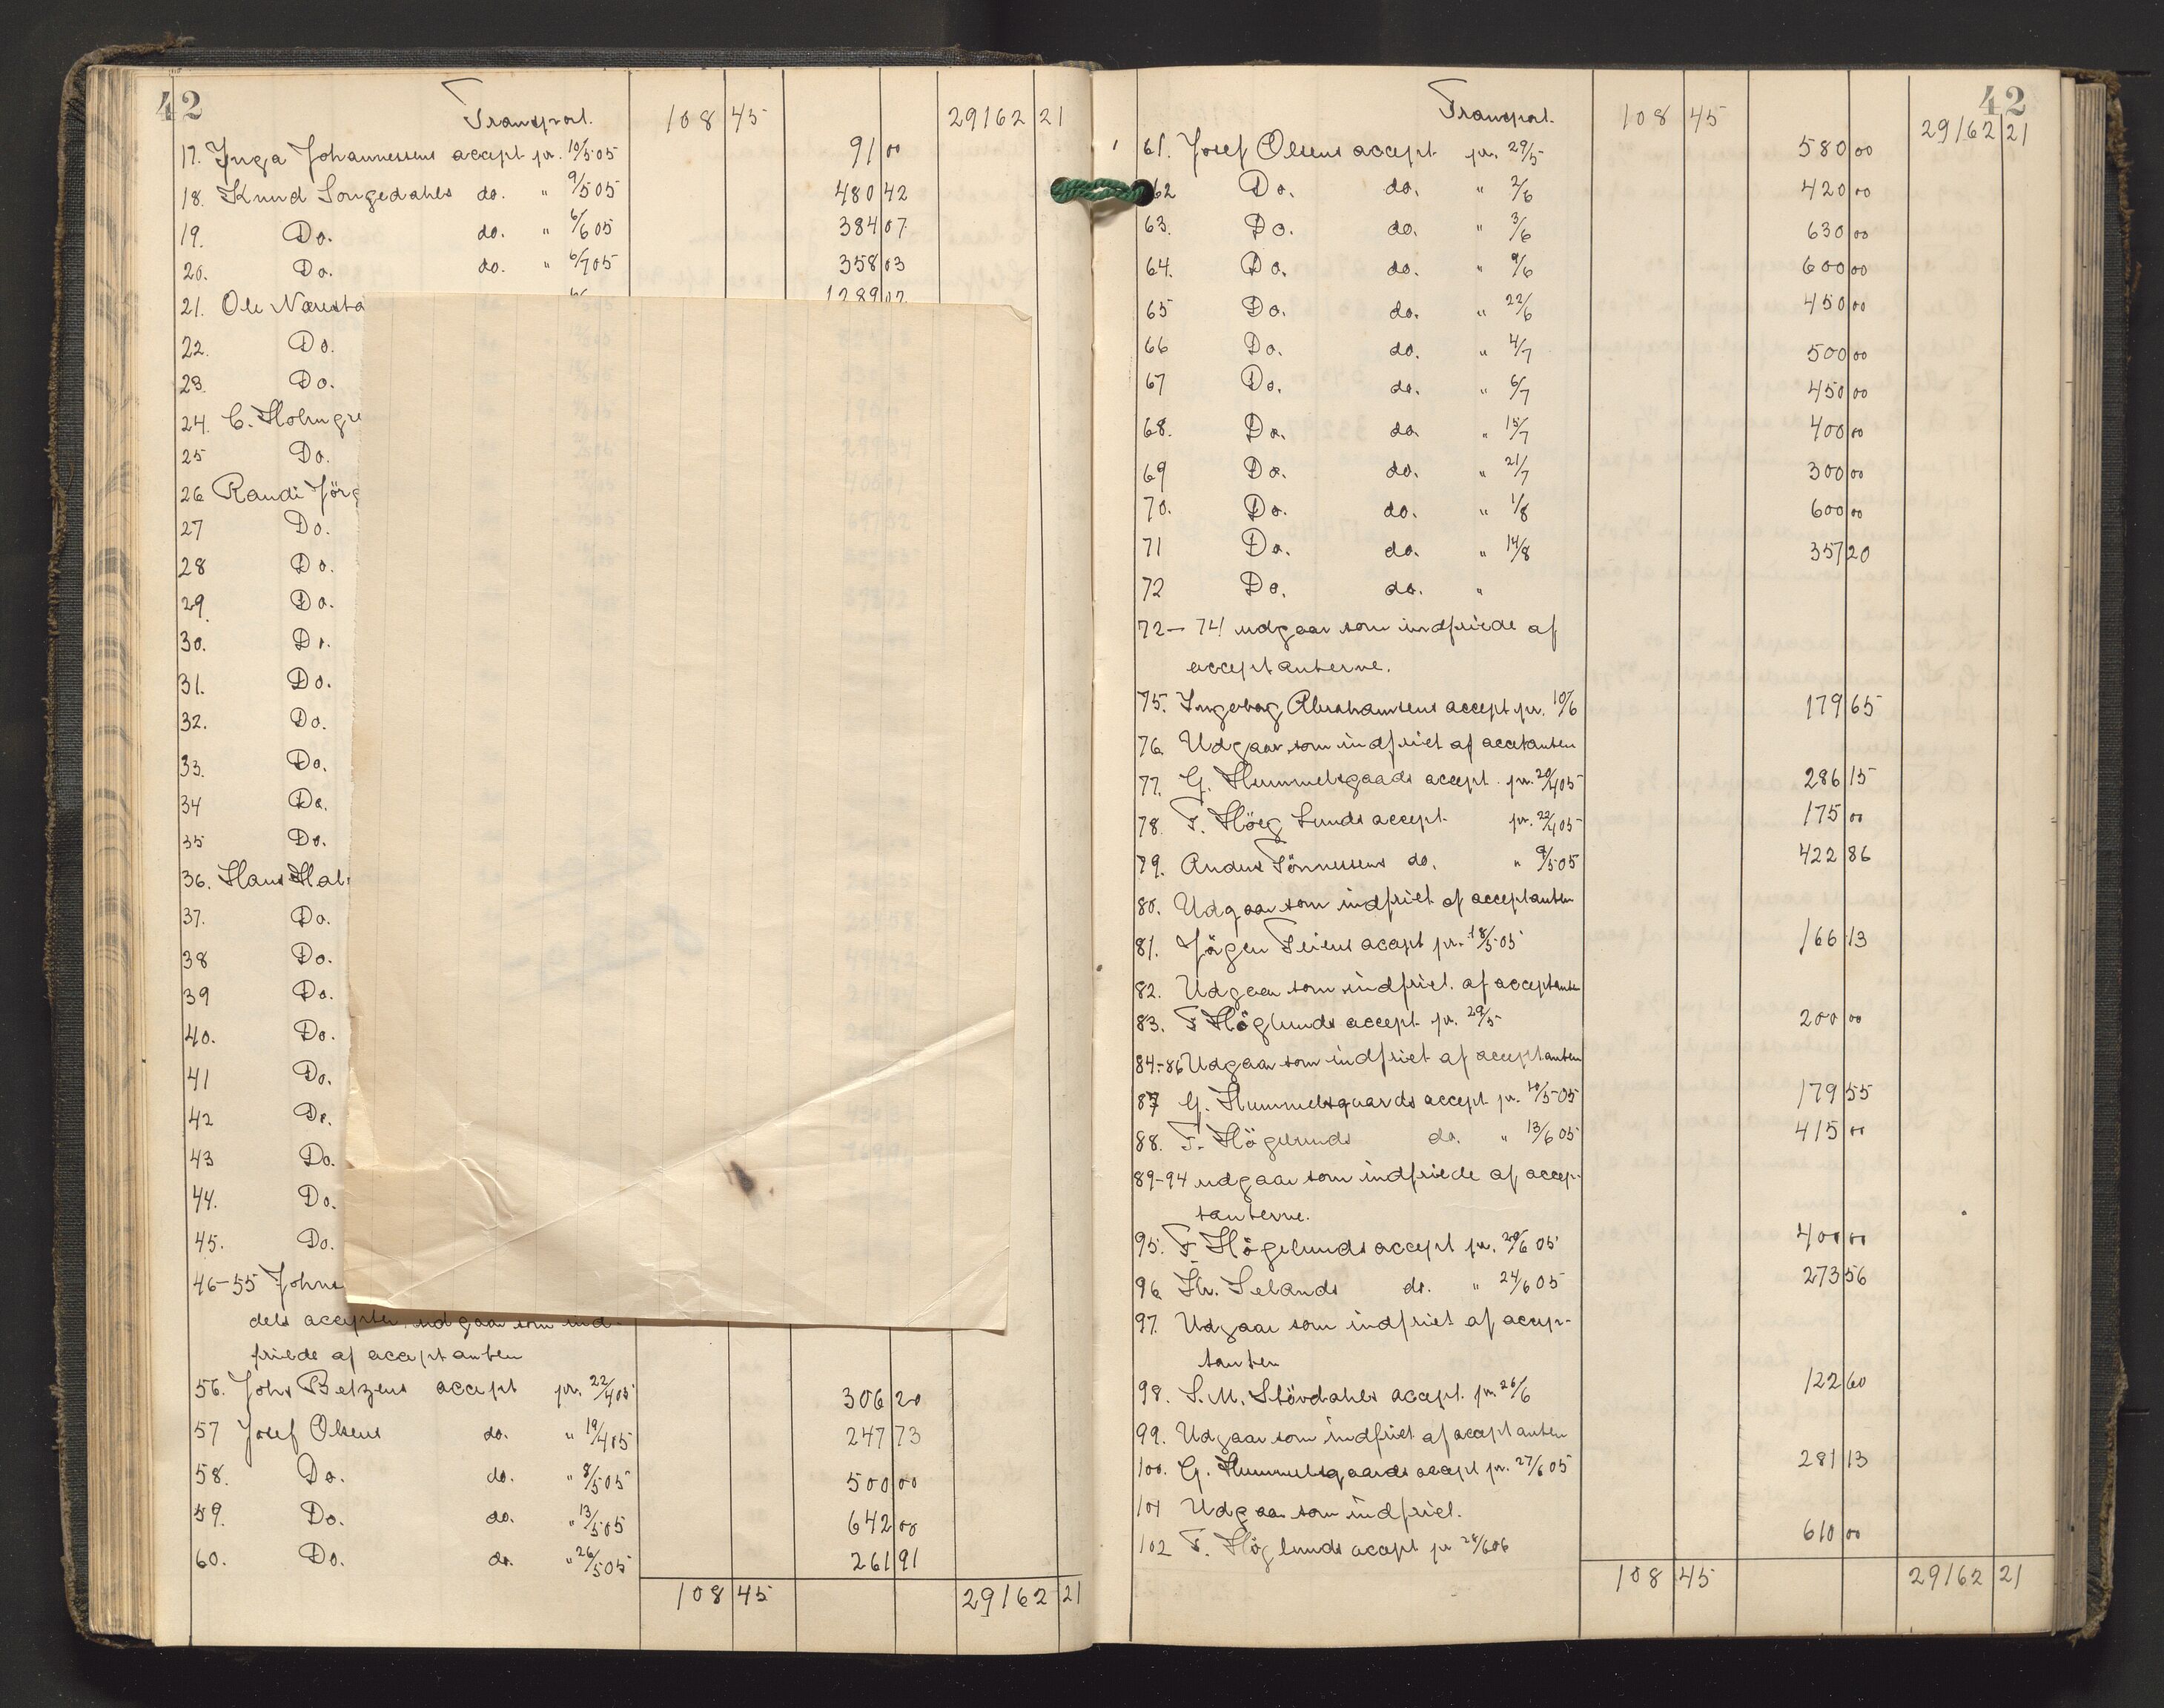 42
Transport. 108 45 29162 21
17. Inga Johannessens accept pr. 10/5 05 91 00
18. Knud Longedahls do. " 9/5 05 480 42
19. Do. do. " 6/6 05 384 07
20. Do. do. " 6/7 05 358 03
21. Ole Næresta 1289 02
22. Do.
23. Do.
24. C. Holmgre
25 Do.
26 Randi Jörg
27 Do.
28 Do.
29. Do.
30. Do.
31. Do.
32. Do.
33. Do.
34 Do.
35 Do.
36. Hans Hal
37. Do.
38 Do.
39 Do.
40. Do.
41 Do.
42 Do.
43 Do.
44. Do.
45. Do.
46-55 Johns
dels accepter udgaar som ind-
friede af acceptanten
56. Johs Betzens accept pr. 22/4 05 306 20
57 Josef Olsens do. " 19/4 05 247 73
58. Do. do. " 8/5 05 500 00
59. Do. do. " 13/5 05 642 00
60. Do. do. " 26/5 05 261 91
108 45 29162 21
42
Transport. 108 45 29162 21
61. Josef Olsens accept pr. 29/5 580 00
62 Do. do. " 2/6 420 00
63. Do. do. " 3/6 630 00
64. Do. do. " 9/6 600 00
65 Do. do. " 22/6 450 00
66 Do. do. " 4/7 500 00
67 Do. do. " 6/7 450 00
68. Do. do " 15/7 400 00
69 Do. do. " 21/7 300 00
70. Do. do. " 1/8 600 00
71 Do. do. " 14/8 357 20
72 Do. do. "
72-74 udgaar som indfriede af
acceptanterne.
75. Ingebog Abrahamsens accept pr. 10/6 179 65
76 Udgaar som indfriet af accetanten
77. G. Hummelsgaads accept pr. 20/4 05 286 15
78. F. Höeg Lunds accept pr. 22/4 05 175 00
79. Anders Tönnessens do. " 9/5 05 422 86
80. Udgaar som indfriet af acceptanten
81. Jörgen Feiens accept pr. 18/5 05 166 13
82. Udgaar som indfriet. af acceptanten
83. F Höglunds accept pr. 29/5 200 00
84-86 Udgaar som indfriet af acceptanten
87 G. Hummelsgaards accept pr. 10/5 05 179 55
88. F. Högelunds do. " 13/6 05 415 00
89-94 udgaar som indfriede af accep-
tanterne.
95. F Högelunds accept pr. 20/6 05 400 00
96 Kr. Selands do. " 24/6 05 273 56
97. Udgaar som indfriet af accep-
tanten
98. S. M. Stövdahls accept. pr. 26/6 122 60
99. Udgaar som indfriet af acceptanten
100. G. Hummelsgaards accept pr. 27/6 05 281 13
101 Udgaar som indfriet.
102 F. Höglunds accept pr 28/6 06 610 00
108 45 29162 21